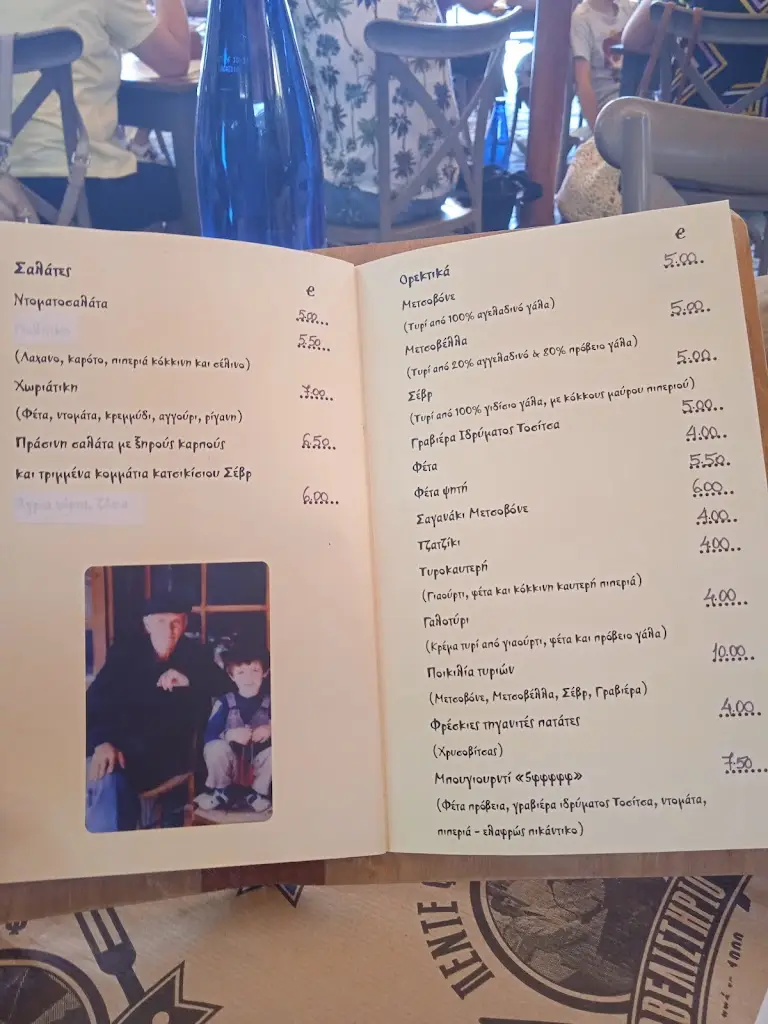 Σαλάτες
e
Ντοματοσαλάτα
5.00
5.50
(Λαχανο, καρότο, πιπεριά κόκκινη και σέλινο)
Χωριάτικη
7.00
(Φέτα, ντομάτα, κρεμμύδι, αγγούρι, ρίγανη)
Πράσινη σαλάτα με ξηρούς καρπούς
6.50
και τριμμένα κομμάτια κατσικίσιου Σέβρ
6.00
Ορεκτικά
e
Μετσοβόνε
5.00
(Τυρί από 100% αγελαδινό γάλα)
Μετσοβέλλα
5.00
(Τυρί από 20% αγγελαδινό & 80% πρόβειο γάλα)
Σέβρ
5.00
(Τυρί από 100% γιδίσιο γάλα, με κόκκους μαύρου πιπεριού)
Γραβιέρα Ιδρύματος Τοσίτσα
5.00
Φέτα
4.00
Φέτα ψητή
5.50
Σαγανάκι Μετσοβόνε
6.00
Τζατζίκι
4.00
Τυροκαυτερή
4.00
(Γιαούρτι, φέτα και κόκκινη καυτερή πιπεριά)
Γαλοτύρι
4.00
(Κρέμα τυρί από γιαούρτι, φέτα και πρόβειο γάλα)
Ποικιλία τυριών
10.00
(Μετσοβόνε, Μετσοβέλλα, Σέβρ, Γραβιέρα)
Φρέσκιες τηγανιτές πατάτες
4.00
(Χρυσοβίτσας)
Μπουγιουρντί «5φφφφφ»
7.50
(Φέτα πρόβεια, γραβιέρα ιδρύματος Τοσίτσα, ντομάτα,
πιπεριά - ελαφρώς πικάντικο)
ΠΕΝΤΕ Φ